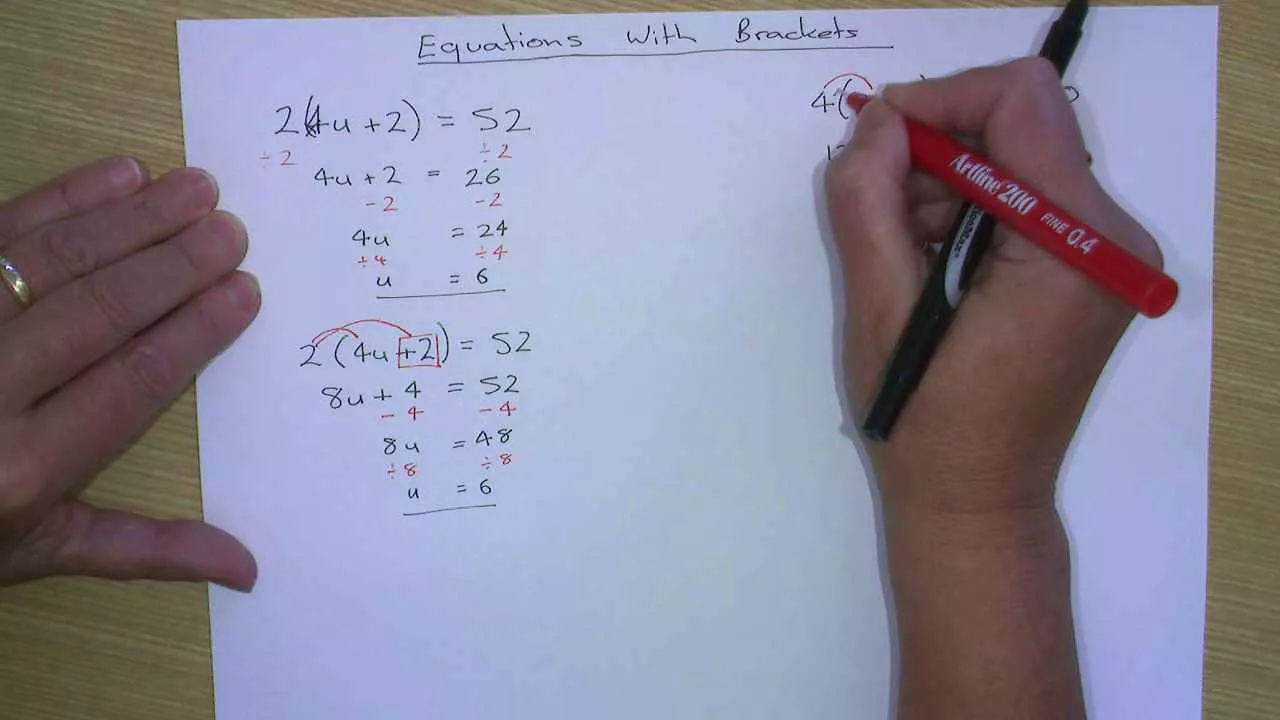 Equations With Brackets
2(4u + 2) = 52
÷ 2 ÷ 2
4u + 2 = 26
- 2 - 2
4u = 24
÷4 ÷4
u = 6
2 (4u + 2) = 52
8u + 4 = 52
- 4 - 4
8u = 48
÷8 ÷8
u = 6
4(
Artline 200 FINE 0.4